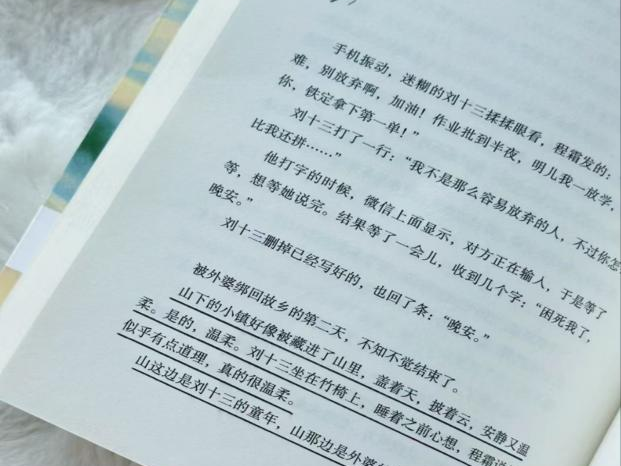 手机振动，迷糊的刘十三揉揉眼看，程霜发的：
难，别放弃啊，加油！作业批到半夜，明儿我一放学，
你，铁定拿下第一单！”
刘十三打了一行：“我不是那么容易放弃的人，不过你怎
比我还拼……”
他打字的时候，微信上面显示，对方正在输入，于是等了
等，想等她说完。结果等了一会儿，收到几个字：“困死我了，
晚安。”
刘十三删掉已经写好的，也回了条：“晚安。”
被外婆绑回故乡的第二天，不知不觉结束了。
山下的小镇好像被藏进了山里，盖着天，披着云，安静又温
柔。是的，温柔。刘十三坐在竹椅上，睡着之前心想，程霜说
似乎有点道理，真的很温柔。
山这边是刘十三的童年，山那边是外婆